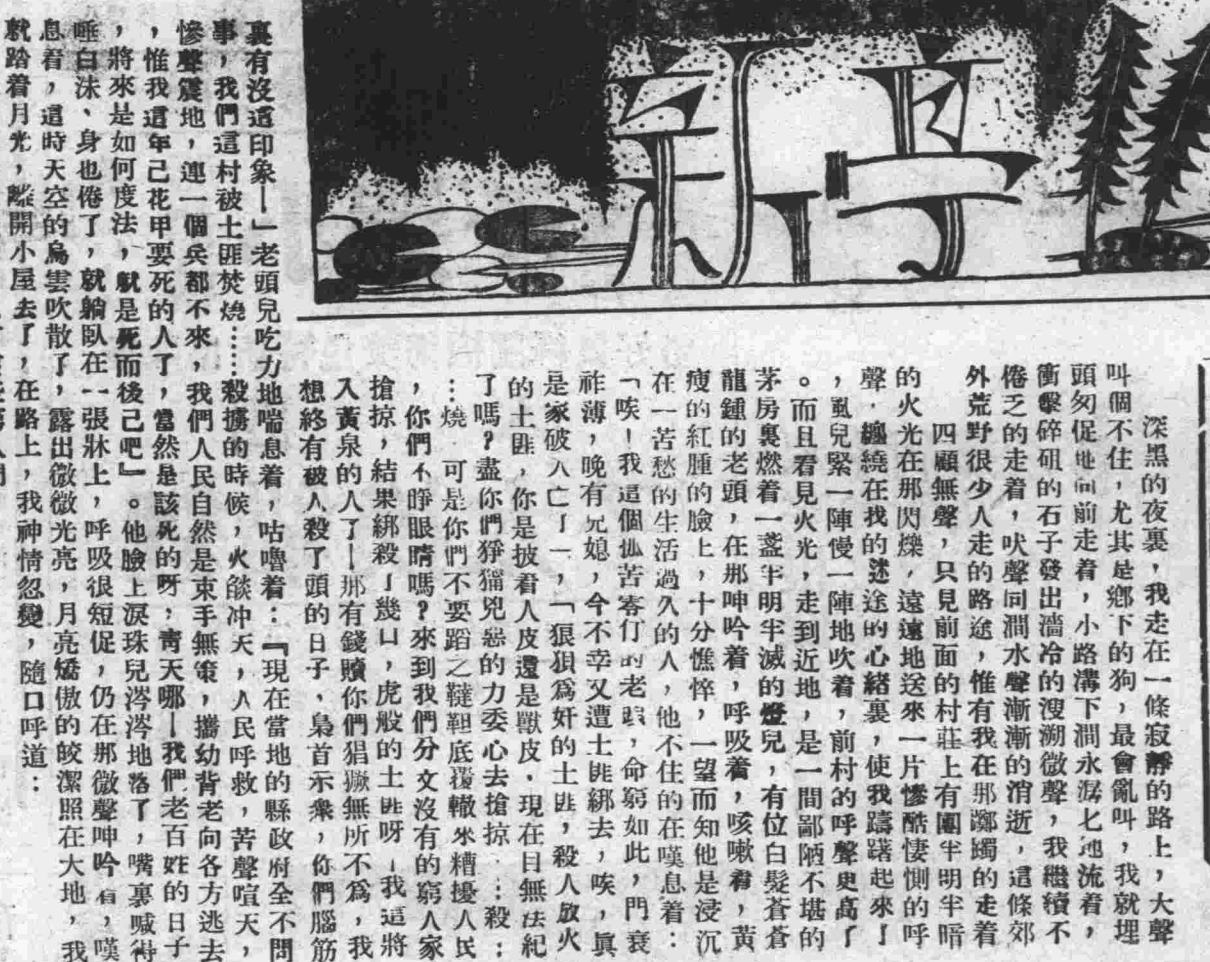 深黑的夜裏，我走在一條寂靜的路上，大聲
叫個不住，尤其是鄉下的狗，最會亂叫，我就埋
頭匆促地向前走着，小路溝下澗水潺七地流着，
衝擊碎砠的石子發出濇冷的溲溯微聲，我繼續不
倦乏的走着，吠聲同澗水聲漸漸的消逝，這條郊
外荒野很少人走的路途，惟有我在那躑躅的走着
四顧無聲，只見前面的村莊上有團半明半暗
的火光在那閃爍，遠遠地送來一片慘酷悽惻的呼
聲，纏繞在我的迷途的心緒裏，使我躊躇起來了
，風兒緊一陣慢一陣地吹着，前村的呼聲更高了
。而且看見火光，走到近地，是一間鄙陋不堪的
茅房裏燃着一盞半明半滅的燈兒，有位白髮蒼蒼
龍鍾的老頭，在那呻吟着，呼吸着，咳嗽着，黃
瘦的紅腫的臉上，十分憔悴，一望而知他是浸沉
在一苦愁的生活過久的人，他不住的在嘆息着：
「唉！我這個孤苦零仃的老，命窮如此，門衰
祚薄，晚有兄媳，今不幸又遭土匪綁去，唉，眞
是家破人亡了一，「狼狽爲奸的土匪，殺人放火
的土匪，你是披着人皮還是獸皮，現在目無法紀
了嗎？盡你們猙獰兇惡的力委心去搶掠…：殺：
…燒，可是你們不要蹈之韃靼底覆轍來糟擾人民
，你們不睜眼睛嗎？來到我們分文沒有的窮人家
搶掠，結果綁殺了幾口，虎般的土匪呀！我這將
入黃泉的人了！那有錢贖你們猖獗無所不爲，我
想終有被人殺了頭的日子，梟首示衆，你們腦筋
裏有沒這印象！」老頭兒吃力地喘息着，咕嚕着：『現在當地的縣政府全不問
事，我們這村被土匪焚燒……殺擄的時候，火燄冲天，人民呼救，苦聲喧天，
慘聲震地，連一個兵都不來，我們人民自然是束手無策，攜幼背老向各方逃去
，惟我這年己花甲要死的人了，當然是該死的呀，靑天哪！我們老百姓的日子
，將來是如何度法，就是死而後己吧』。他臉上淚珠兒涔涔地落了，嘴裏喊得
唾白沫、身也倦了，就躺臥在一張牀上，呼吸很短促，仍在那微聲呻吟着，嘆
息着，這時天空的烏雲吹散了，露出微微光亮，月亮驕傲的皎潔照在大地，我
就踏着月光，離開小屋去了，在路上，我神情忽變，隨口呼道：